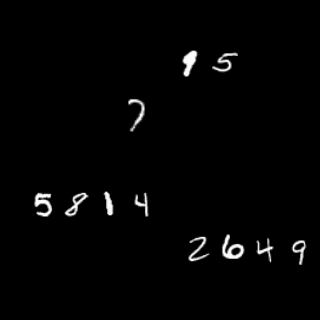 95
7
5814
2649